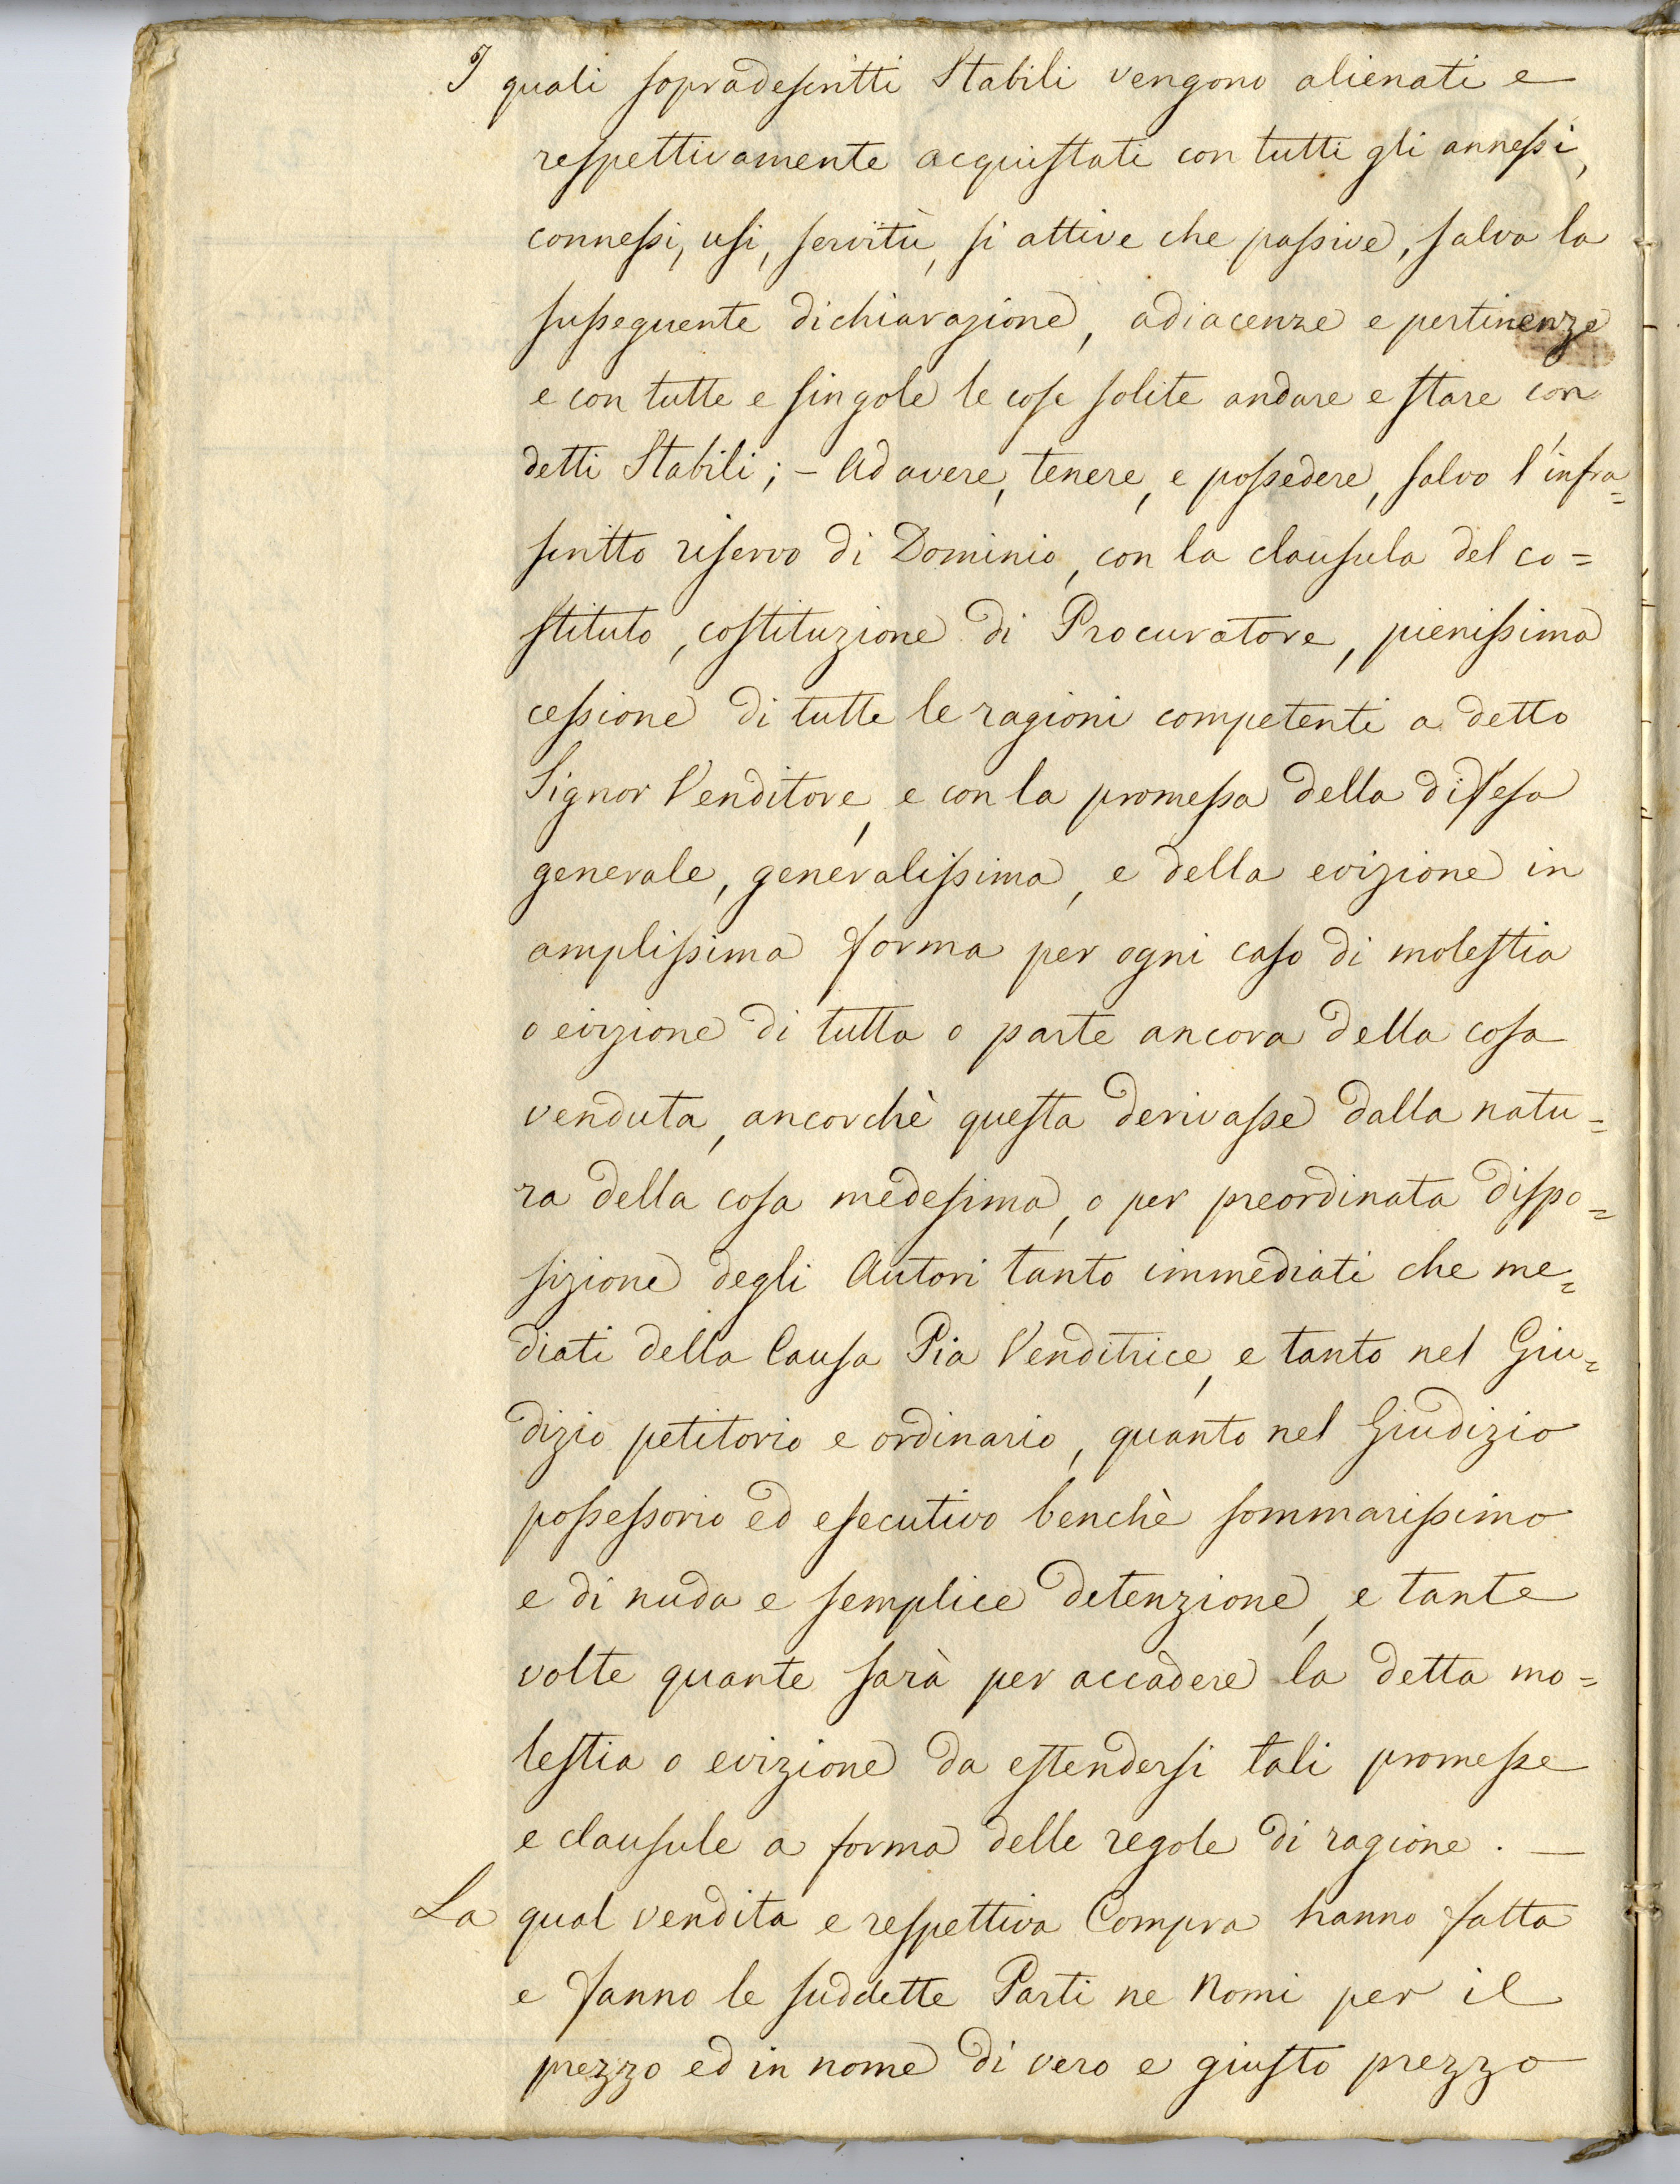 I quali sopradescritti Stabili vengono alienati e
respettivamente acquistati con tutti gli annessi,
connessi, usi, servitù, si attive che passive, salva la
susseguente dichiarazione, adiacenze e pertinenze
e con tutte e singole le cose solite andare e stare con
detti Stabili; - Ad avere, tenere, e possedere, salvo l'infra=
scritto riservo di Dominio, con la clausula del co=
stituto, costituzione di Procuratore, pienissima
cessione di tutte le ragioni competenti a detto
Signor Venditore, e con la promessa della difesa
generale, generalissima, e della evizione in
amplissima forma per ogni caso di molestia
o evizione di tutta o parte ancora della cosa
venduta, ancorchè questa derivasse dalla natu=
ra della cosa medesima, o per preordinata dispo=
sizione degli Autori tanto immediati che me=
diati della Causa Pia Venditrice, e tanto nel Giu=
dizio petitorio e ordinario, quanto nel Giudizio
possessorio ed esecutivo benchè sommarissimo
e di nuda e semplice detenzione, e tante
volte quante sarà per accadere la detta mo=
lestia o evizione da estendersi tali promesse
e clausule a forma delle regole di ragione. —
La qual vendita e respettiva Compra hanno fatta
e fanno le suddette Parti ne Nomi per il
prezzo ed in nome di vero e giusto prezzo